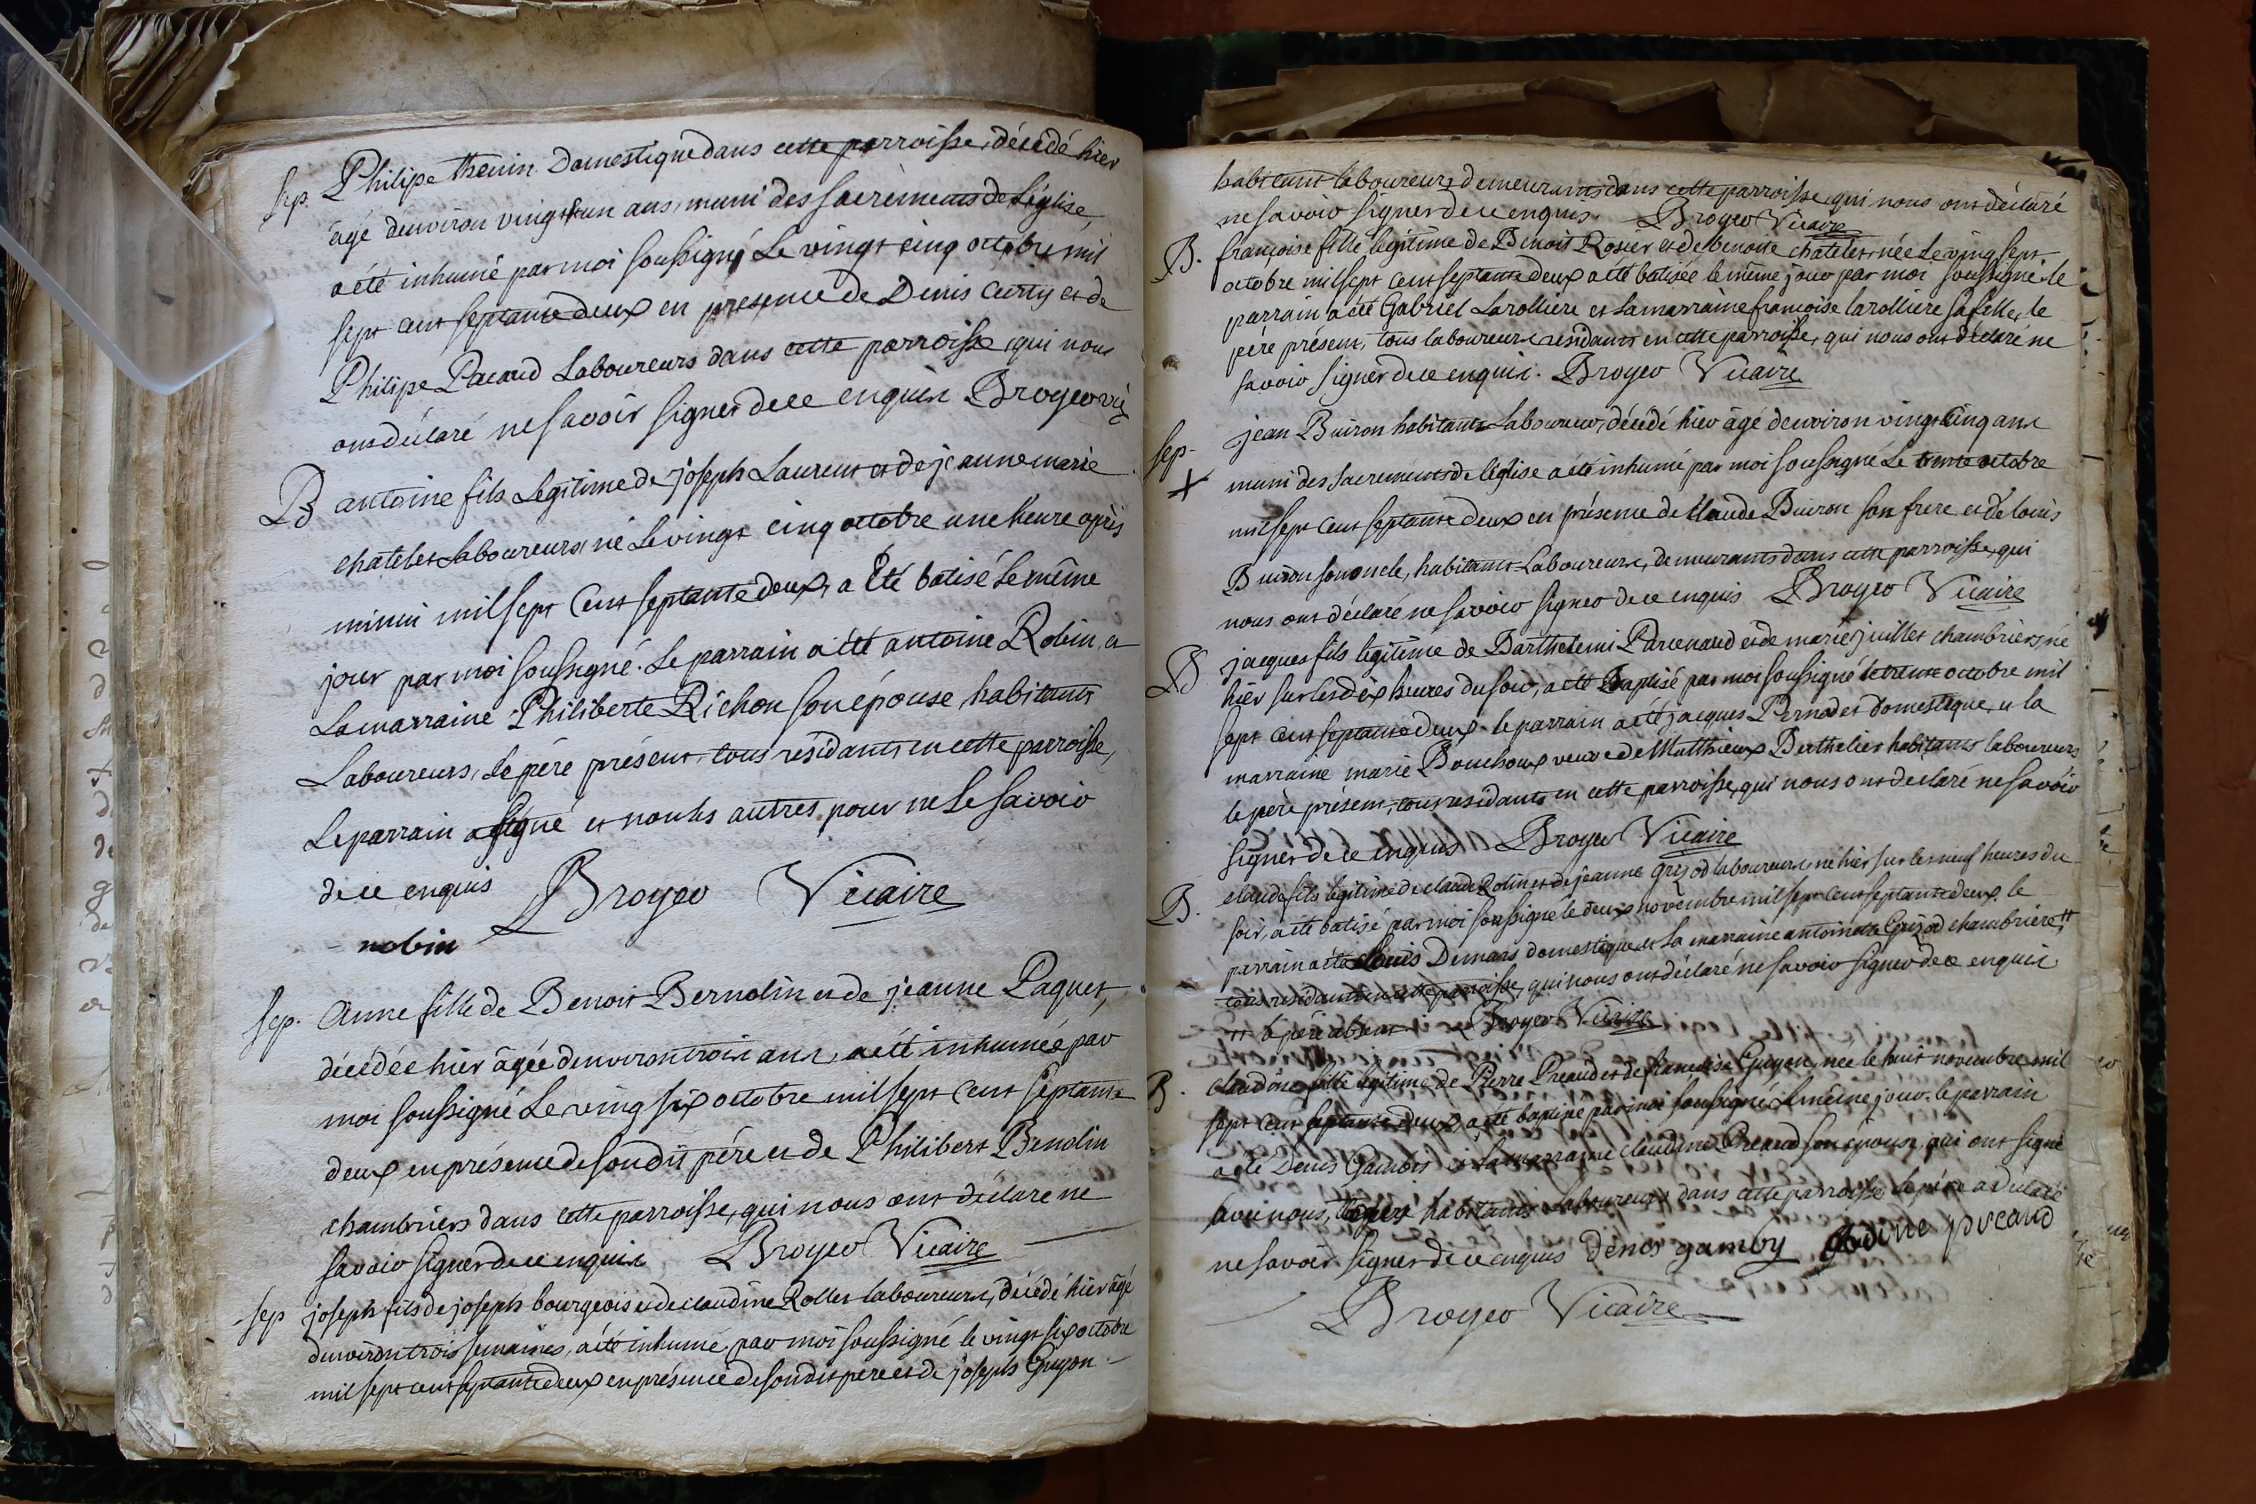 sep. Philipe thenin Domestique dans cette parroisse, décédé hier
âgé denviron vingt un ans, muni des sacrèments de Léglise
a été inhumé par moi soussigné Le vingt cinq octobre mil
sept cent septante deux en présence de Denis Curty et de
Philipe Pacaud Laboureurs dans cette parroisse, qui nous
ont déclaré ne savoir signer de ce enquis Broyer vic
B antoine fils Legitime de joseph Laurent et de jeanne marie
chatelet Laboureurs, né Le vingt cinq octobre une heure après
minui mil sept Cent septante deux, a Eté batisé Le même
jour par moi soussigné. Le parrain a été antoine Robin et
La marraine Philiberte Richon son épouse, habitants
Laboureurs, Le père présent, tous résidants en cette parroisse,
Le parrain a signé et non les autres pour ne Le savoir
de ce enquis Broyer Vicaire
robin
sep. Anne fille de Benoit Bernolin et de jeanne Paquet,
décédée hier âgée denviron trois ans, a été inhumée par
moi soussigné Le vingt six octobre mil sept Cent septante
deux en présence de son dit père et de Philibert Benolin
chambriers dans cette parroisse, qui nous ont déclaré ne
savoir signer de ce enquis Broyer Vicaire
sep joseph fils de joseph bourgeois et de claudine Rollet laboureurs, décédé hier âgé
denviron trois semaines, a été inhumé par moi soussigné le vingt six octobre
mil sept cent septante deux en présence de son dit père et de joseph Guyon
habitants laboureurs demeurants dans cette parroisse, qui nous ont déclaré
ne savoir signer de ce enquis. Broyer Vicaire
B. françoise fille légitime de Benoit Rosier et de benoite chatelet, née Le vingt sept
octobre mil sept cent septante deux a été batisée le même jour par moi soussigné. le
parrain a été Gabriel Larolliere et La marraine françoise larolliere sa fille, le
père présent, tous laboureurs residants en cette parroisse, qui nous ont déclaré ne
savoir signer de ce enquis. Broyer Vicaire
sep. jean Buiron habitant Laboureur, décédé hier âgé denviron vingt Cinq ans
+ muni des sacrements de l'église a été inhumé par moi soussigné Le trente octobre
mil sept cent septante deux en présence de Claude Buiron son frere et de Loüis
Buiron son oncle, habitants Laboureurs, demeurants dans cette parroisse, qui
nous ont déclaré ne savoir signer de ce enquis Broyer Vicaire
B jacques fils légitime de Barthelemi Parenaud et de marie juillet chambriers, né
hier sur les dix heures du soir, a été Baptisé par moi soussigné le trente octobre mil
sept cent septante deux. le parrain a été jacques Pernodet domestique, et la
marraine marie Bouchoux veuve de Matthieux Berthelier habitants laboureurs
le père présent, tous residants en cette parroisse, qui nous ont declaré ne savoir
signer de ce enquis Broyer Vicaire
B. claude fils legitime de claude Rolin et de jeanne Grizod laboureurs, né hier sur les neuf heures du
soir, a été batisé par moi soussigné le deux novembre mil sept cent septante deux. le
parrain a été Loüis Demars domestique et La marraine antoinette Grizod chambriere #
tous residants en cette parroisse, qui nous ont déclaré ne savoir signer de ce enquis
# le père absent. Broyer Vicaire
B. claudine fille legitime de Pierre Preaud et de françoise Guyon, née le huit novembre mil
sept cent septante deux a été baptisée par moi soussigné Le même jour. le parrain
a été Denis Gambis et La marraine claudine Preaud son épouse, qui ont signé
avec nous, habitants Laboureurs dans cette parroisse. le père a déclaré
ne savoir signer de ce enquis denis gamby
Broyer Vicaire